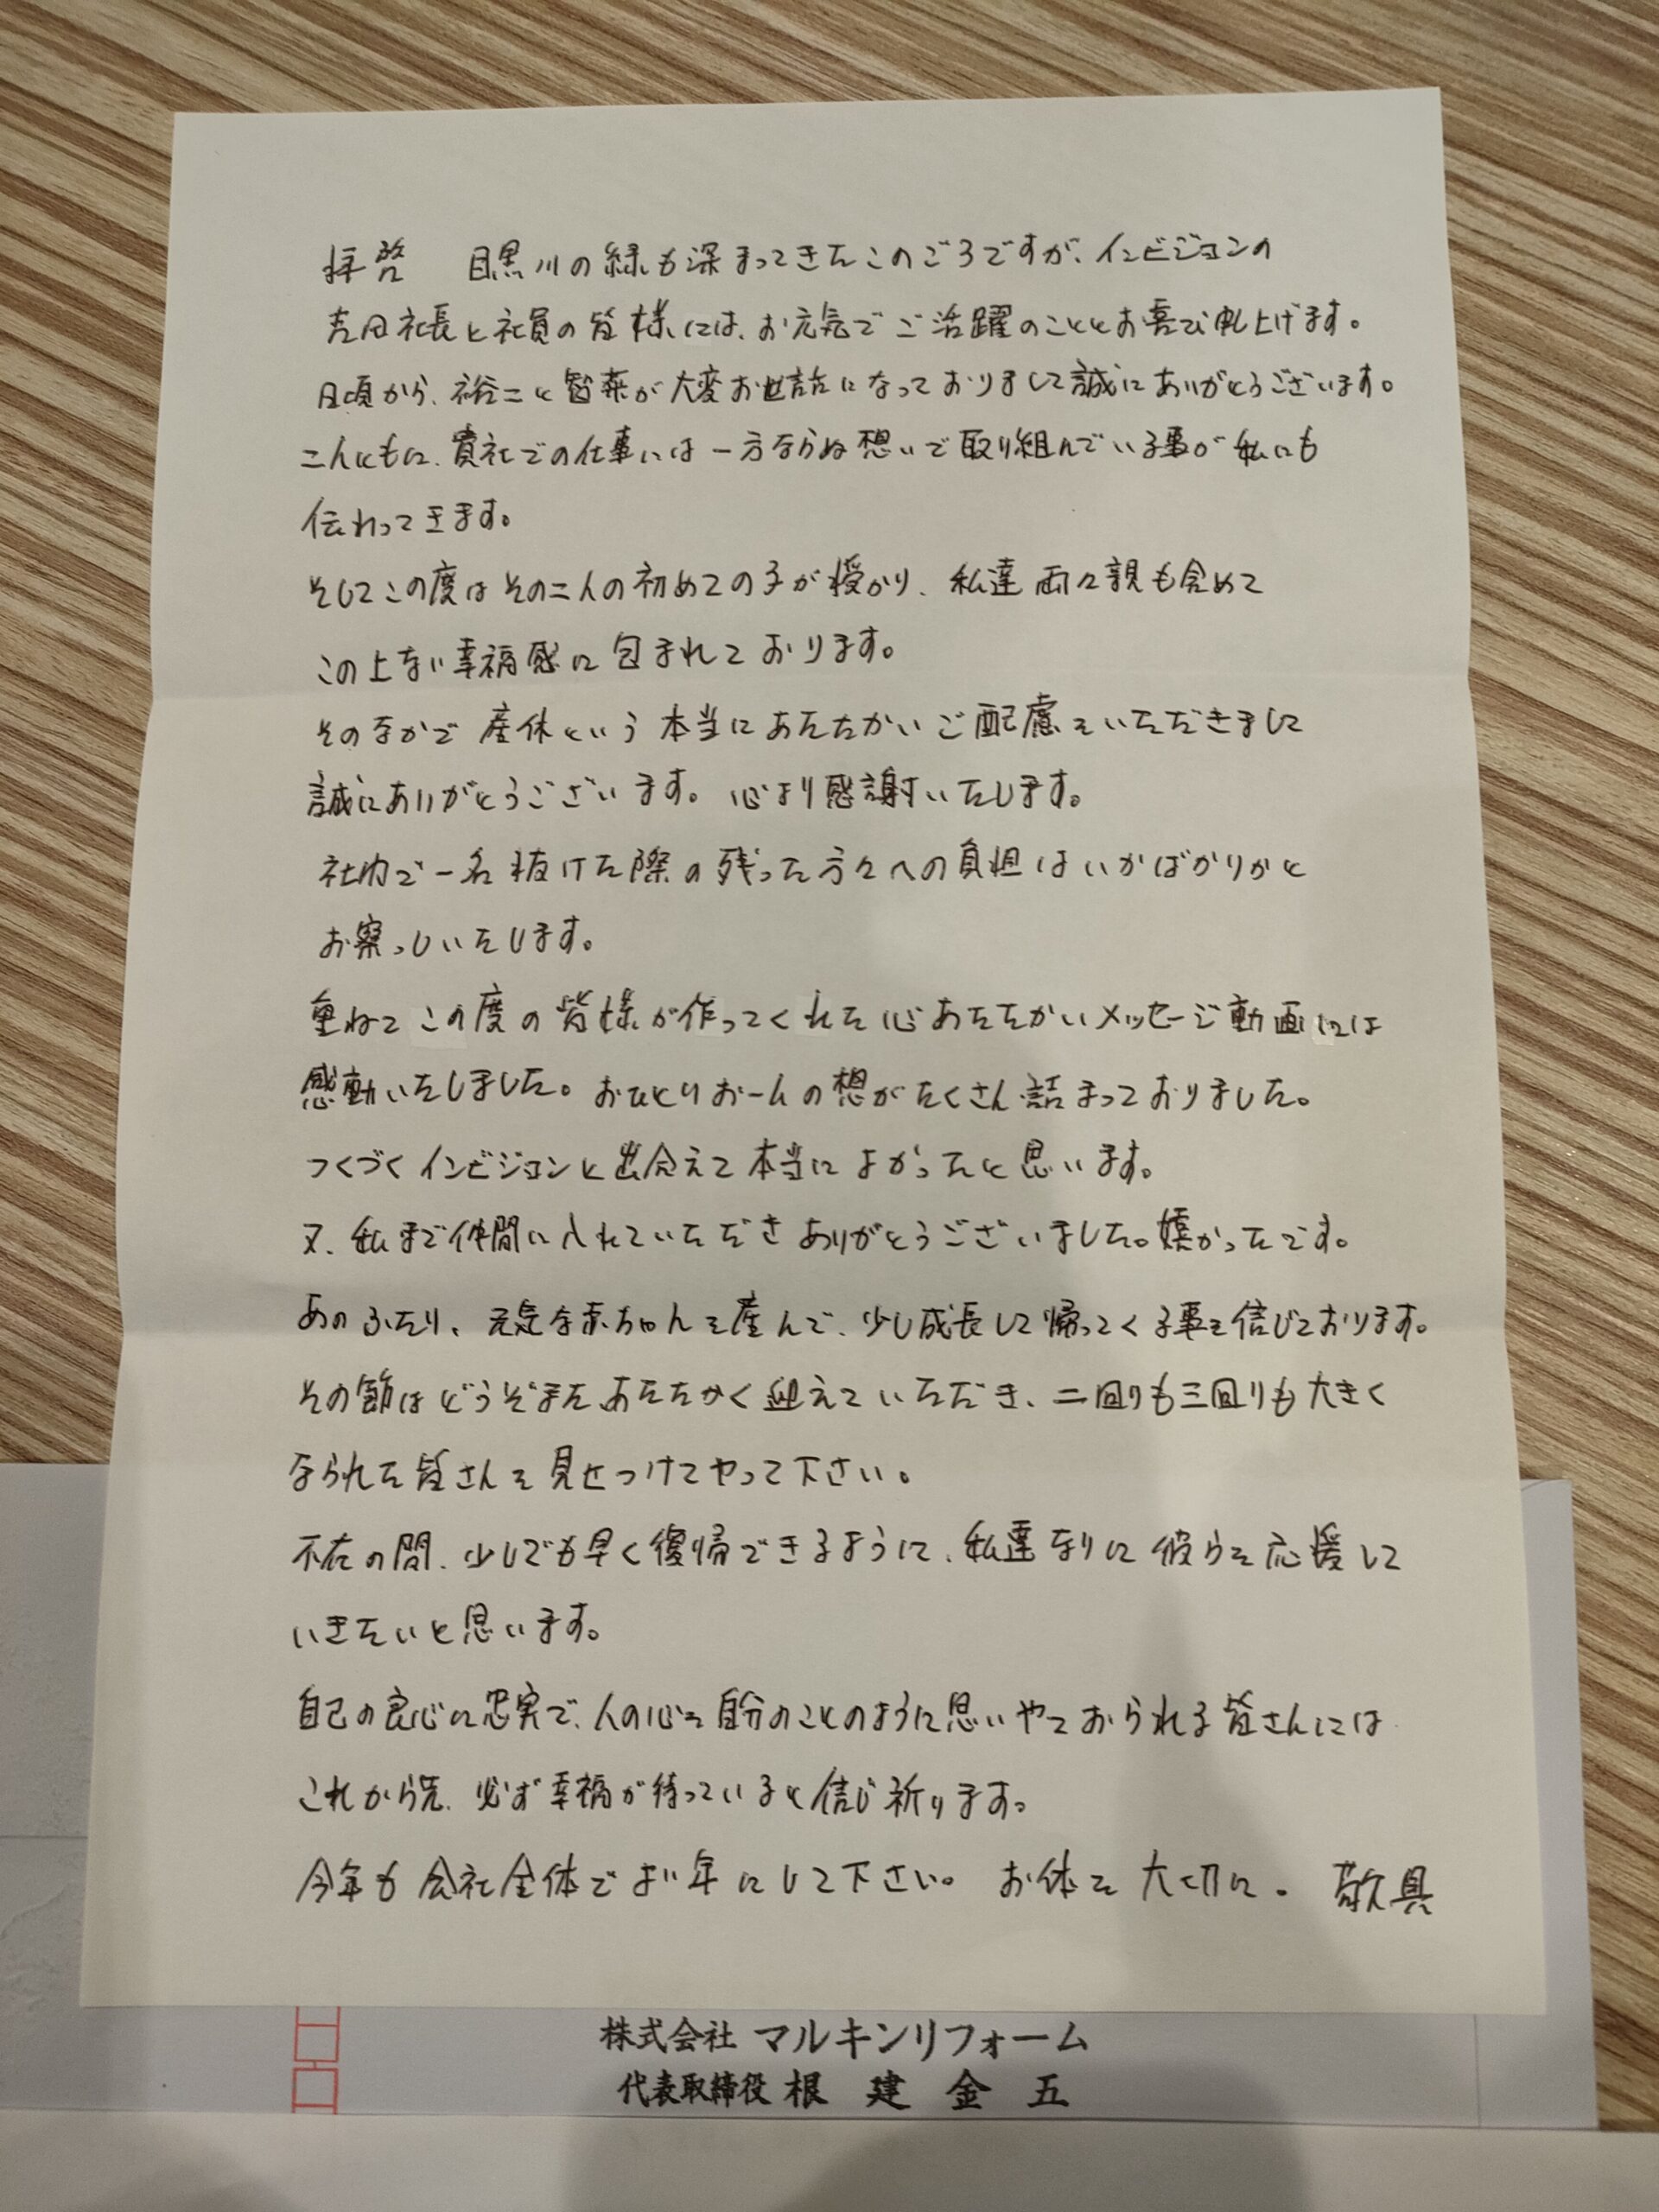 拝啓　目黒川の緑も深まってきたこのごろですが、インビジョンの
吉田社長と社員の皆様には、お元気でご活躍のこととお喜び申し上げます。
日頃から、裕二と智菜が大変お世話になっておりまして誠にありがとうございます。
二人ともに、貴社での仕事には一方ならぬ想いで取り組んでいる事が私にも
伝わってきます。
そしてこの度はその二人の初めての子が授かり、私達両々親も含めて
この上ない幸福感に包まれております。
そのなかで産休という本当にあたたかいご配慮をいただきまして
誠にありがとうございます。心より感謝いたします。
社内で一名抜けた際の残った方々への負担はいかばかりかと
お察っしいたします。
重ねてこの度の皆様が作ってくれた心あたたかいメッセージ動画には
感動いたしました。おひとりお一人の想がたくさん詰まっておりました。
つくづくインビジョンと出会えて本当によかったと思います。
又、私まで仲間に入れていただきありがとうございました。嬉かったです。
あのふたり、元気な赤ちゃんを産んで、少し成長して帰ってくる事を信じております。
その節はどうぞまたあたたかく迎えていただき、二回りも三回りも大きく
なられた皆さんを見せつけてやって下さい。
不在の間、少しでも早く復帰できるように、私達なりに彼らを応援して
いきたいと思います。
自己の良心に忠実で、人の心を自分のことのように思いやっておられる皆さんには
これから先、必ず幸福が待っていると信じ祈ります。
今年も会社全体でよい年にして下さい。お体を大切に。　敬具
株式会社 マルキンリフォーム
代表取締役 根建金五